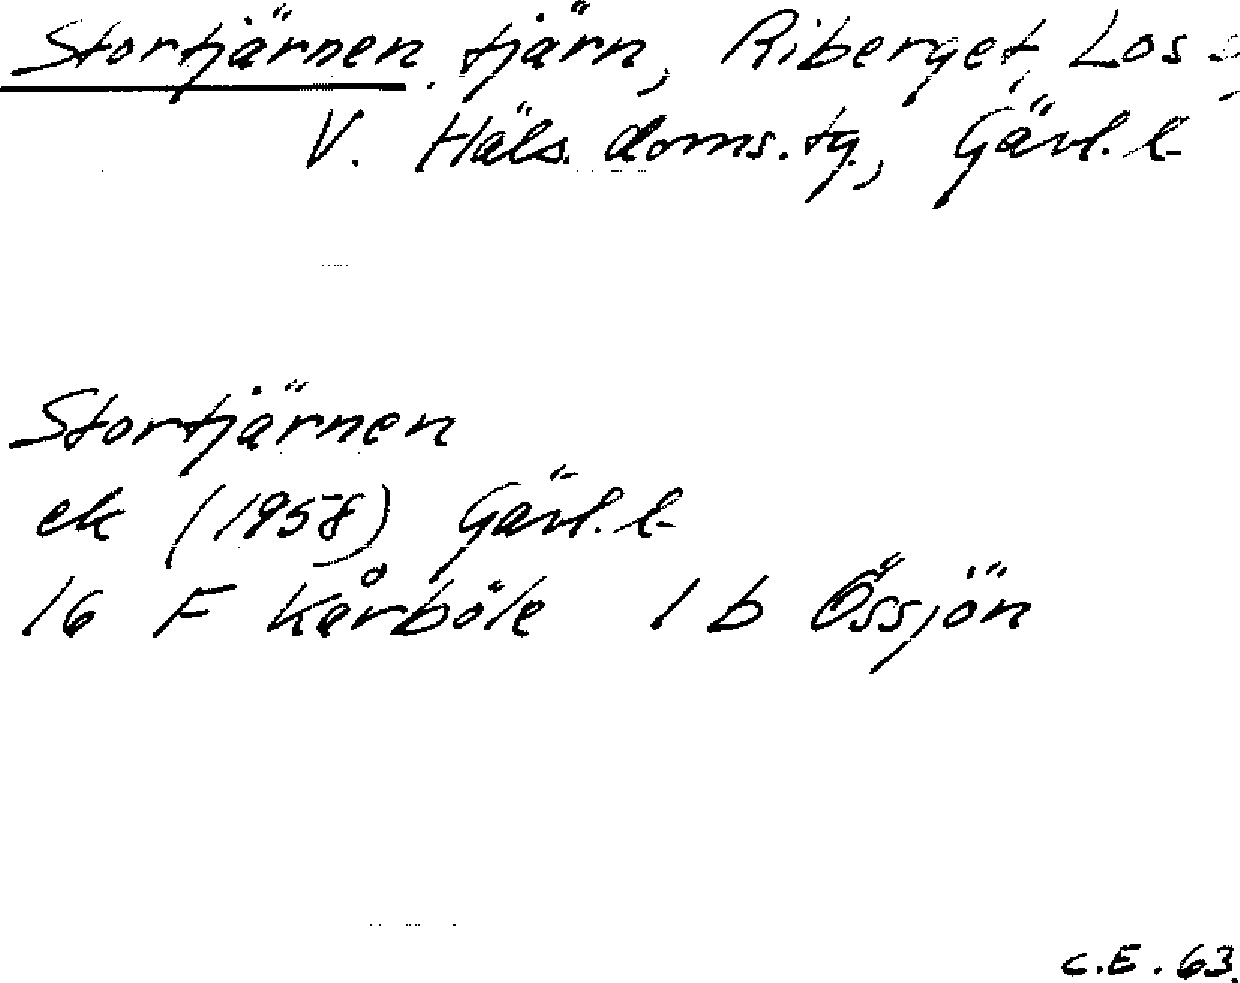 Stortjärnen, tjärn, Riberget, Los
V. Häls. doms. tg., Gävl. l.
Stortjärnen
ek (1958) Gävl. l.
16 F Kårböle 1 b Össjön
C.E. 63.